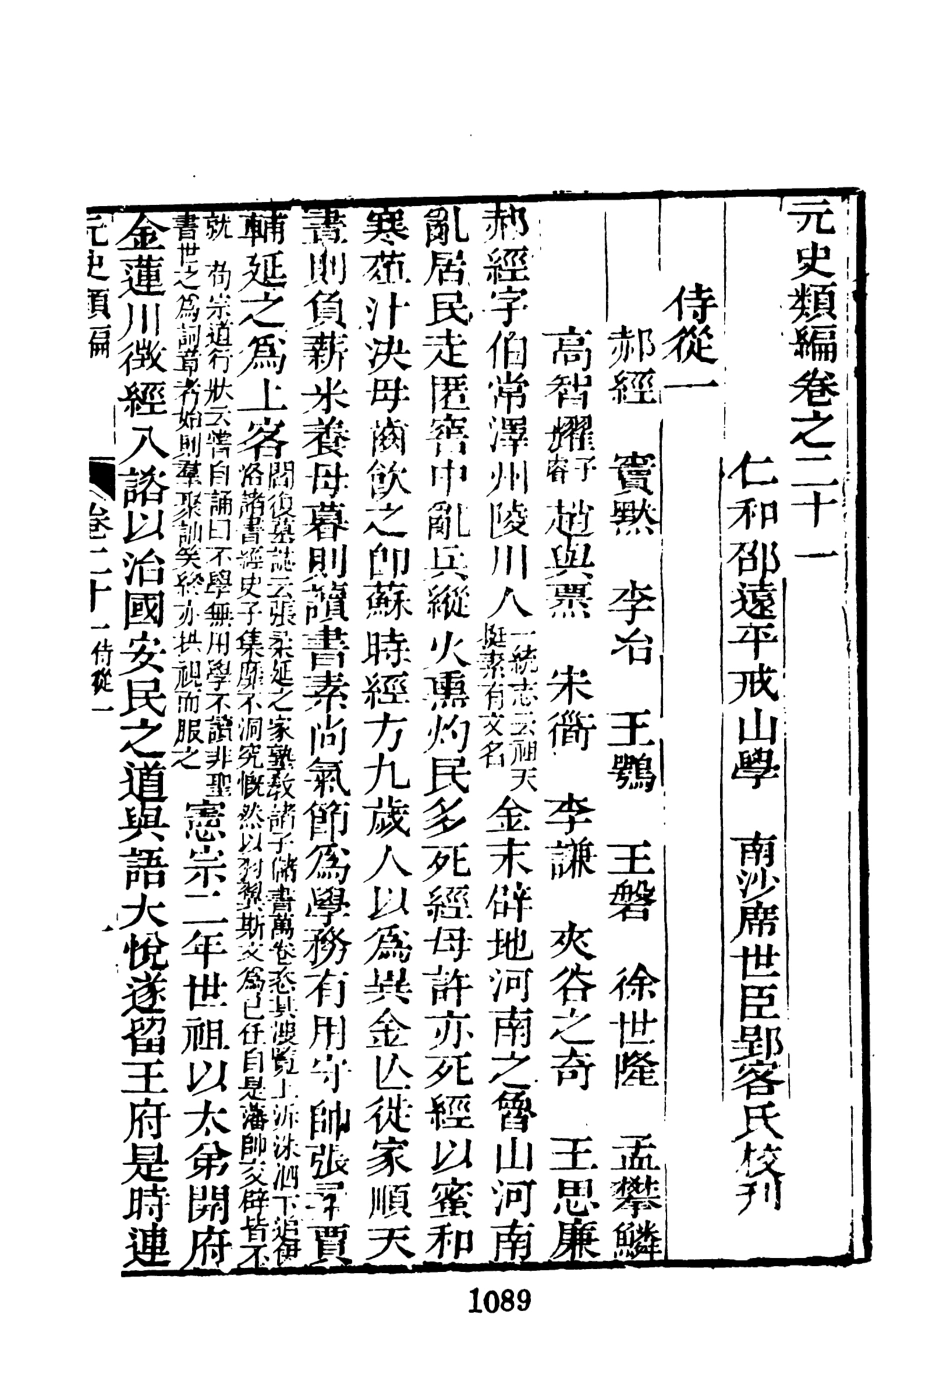 元史類編卷之二十一
仁和邵遠平戒山學　南沙席世臣郢客氏校刋
侍從一
郝經　竇默　李冶　王鶚　王磐　徐世隆　孟攀鱗
高智耀子睿　趙與票　宋衜　李謙　夾谷之奇　王思廉
郝經字伯常澤州陵川人一統志云祖天挺素有文名金末辟地河南之魯山河南
亂居民走匿窖中亂兵縱火熏灼民多死經母許亦死經以蜜和
寒葅汁決母齒飲之卽蘇時經方九歲人以爲異金亾徙家順天
晝則負薪米養母暮則讀書素尚氣節爲學務有用守帥張柔賈
輔延之爲上客閻復墓誌云張柔延之家塾敎諸子儲書萬卷恣其溲覽上泝洙泗下追伊
洛諸書經史子集靡不洞究慨然以羽翼斯文爲已任自是藩帥交辟皆不
就　苟宗道行狀云嘗自誦曰不學無用學不讀非聖
書世之爲詞章者始則羣聚訕笑終亦拱視而服之憲宗二年世祖以太弟開府
金蓮川徵經入諮以治國安民之道與語大悅遂留王府是時連
元史類編　卷二十一侍從一
1089